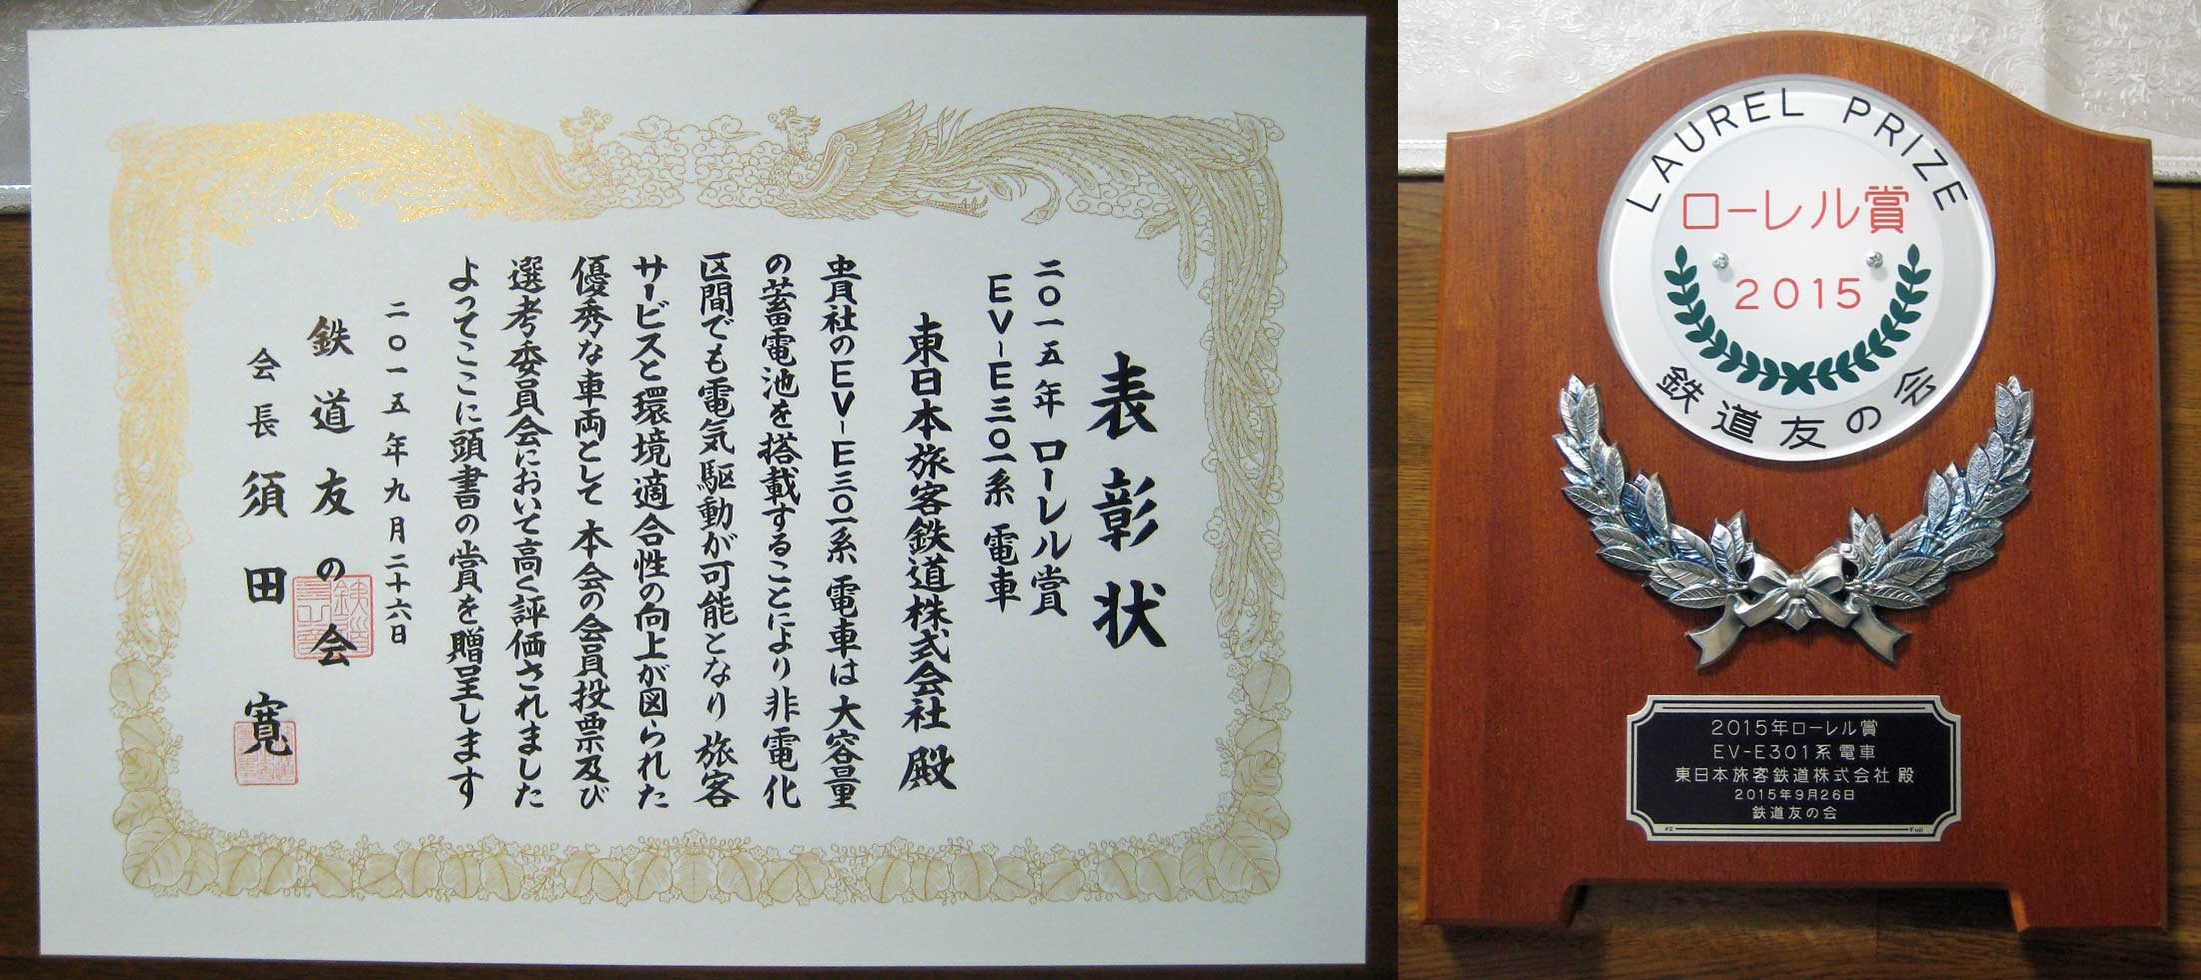 表彰状
二〇一五年 ローレル賞
EV-E三〇一系 電車
東日本旅客鉄道株式会社 殿
貴社のEV-E三〇一系 電車は大容量
の蓄電池を搭載することにより非電化
区間でも電気駆動が可能となり 旅客
サービスと環境適合性の向上が図られた
優秀な車両として 本会の会員投票及び
選考委員会において高く評価されました
よってここに頭書の賞を贈呈します
二〇一五年九月二十六日
鉄道友の会
会長 須田 寬
LAUREL PRIZE
ローレル賞
2015
鉄道友の会
2015年ローレル賞
EV-E301系 電車
東日本旅客鉄道株式会社 殿
2015年9月26日
鉄道友の会